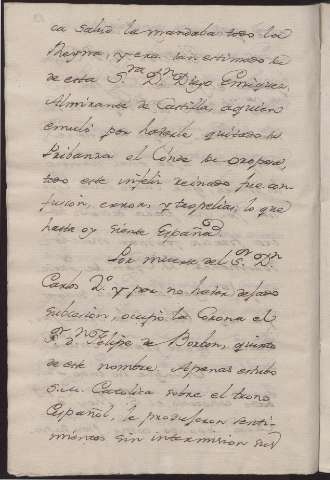 ca salud la mandaba todo la
Reyna, y era tan estimado de
de esta S.ra D.n Diego Enriquez,
Almirante de Castilla, a quien
emuló por haverle quitado la
Pribanza el Conde de Oropesa,
todo este infeliz reinado fue con-
fusion, errores y tropelias, lo que
hasta oy siente España.
Por muerte del S.r D.n
Carlos 2.o y por no haver dejado
subcesion, ocupó la Corona el
S.r D. Felipe de Borbon, quinto
de este nombre. Apenas estubo
s.m. Catolica sobre el trono
Español, le produjeron senti-
mientos sin intermision sus